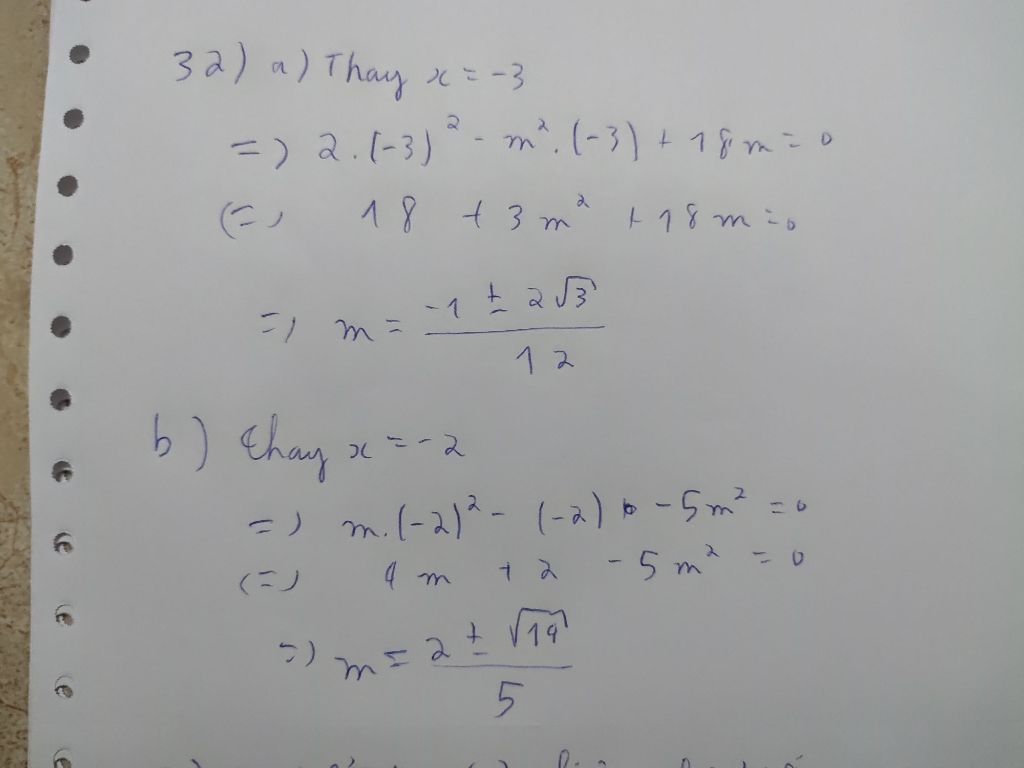 32) a) Thay x = -3
=> 2.(-3)² - m².(-3) + 18m = 0
<=> 18 + 3m² + 18m = 0
=> m = (-1 ± 2√3)/12
b) thay x = -2
=> m.(-2)² - (-2) - 5m² = 0
<=> 4m + 2 - 5m² = 0
=> m = (2 ± √14)/5